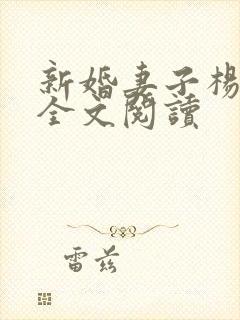 新婚妻子楊
全文閱讀
雷茲